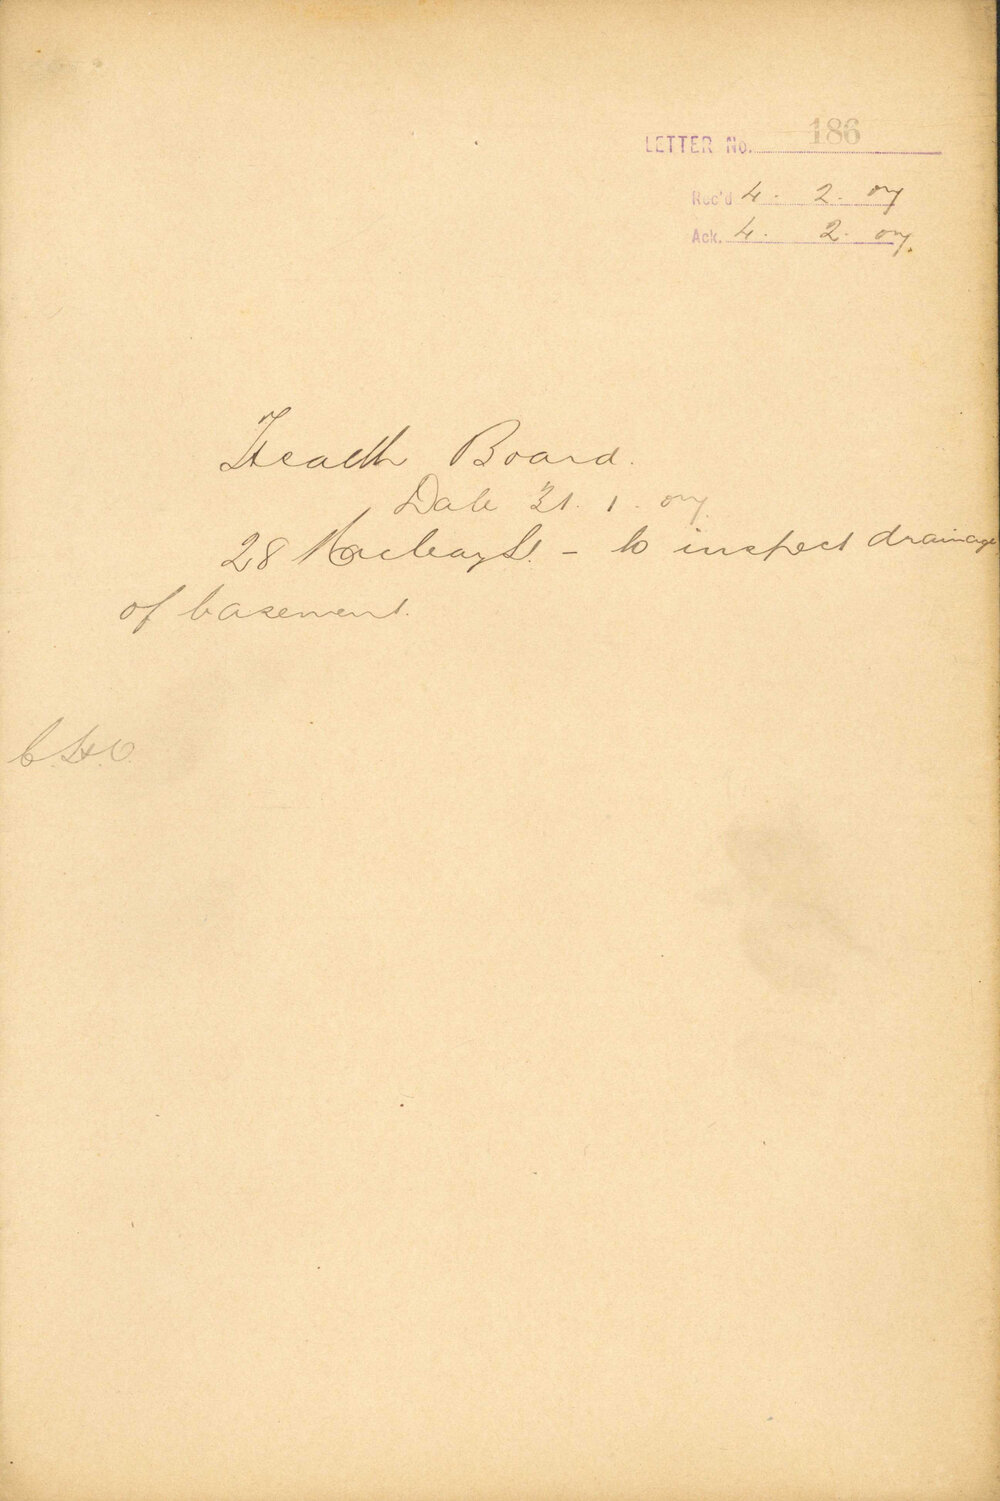 LETTER No. 186
Rec'd 4. 2. 07
Ack. 4. 2. 07.
Health Board.
Date 31. 1. 07.
28 Macleay St. - to inspect drainage
of basement.
C.H.O.